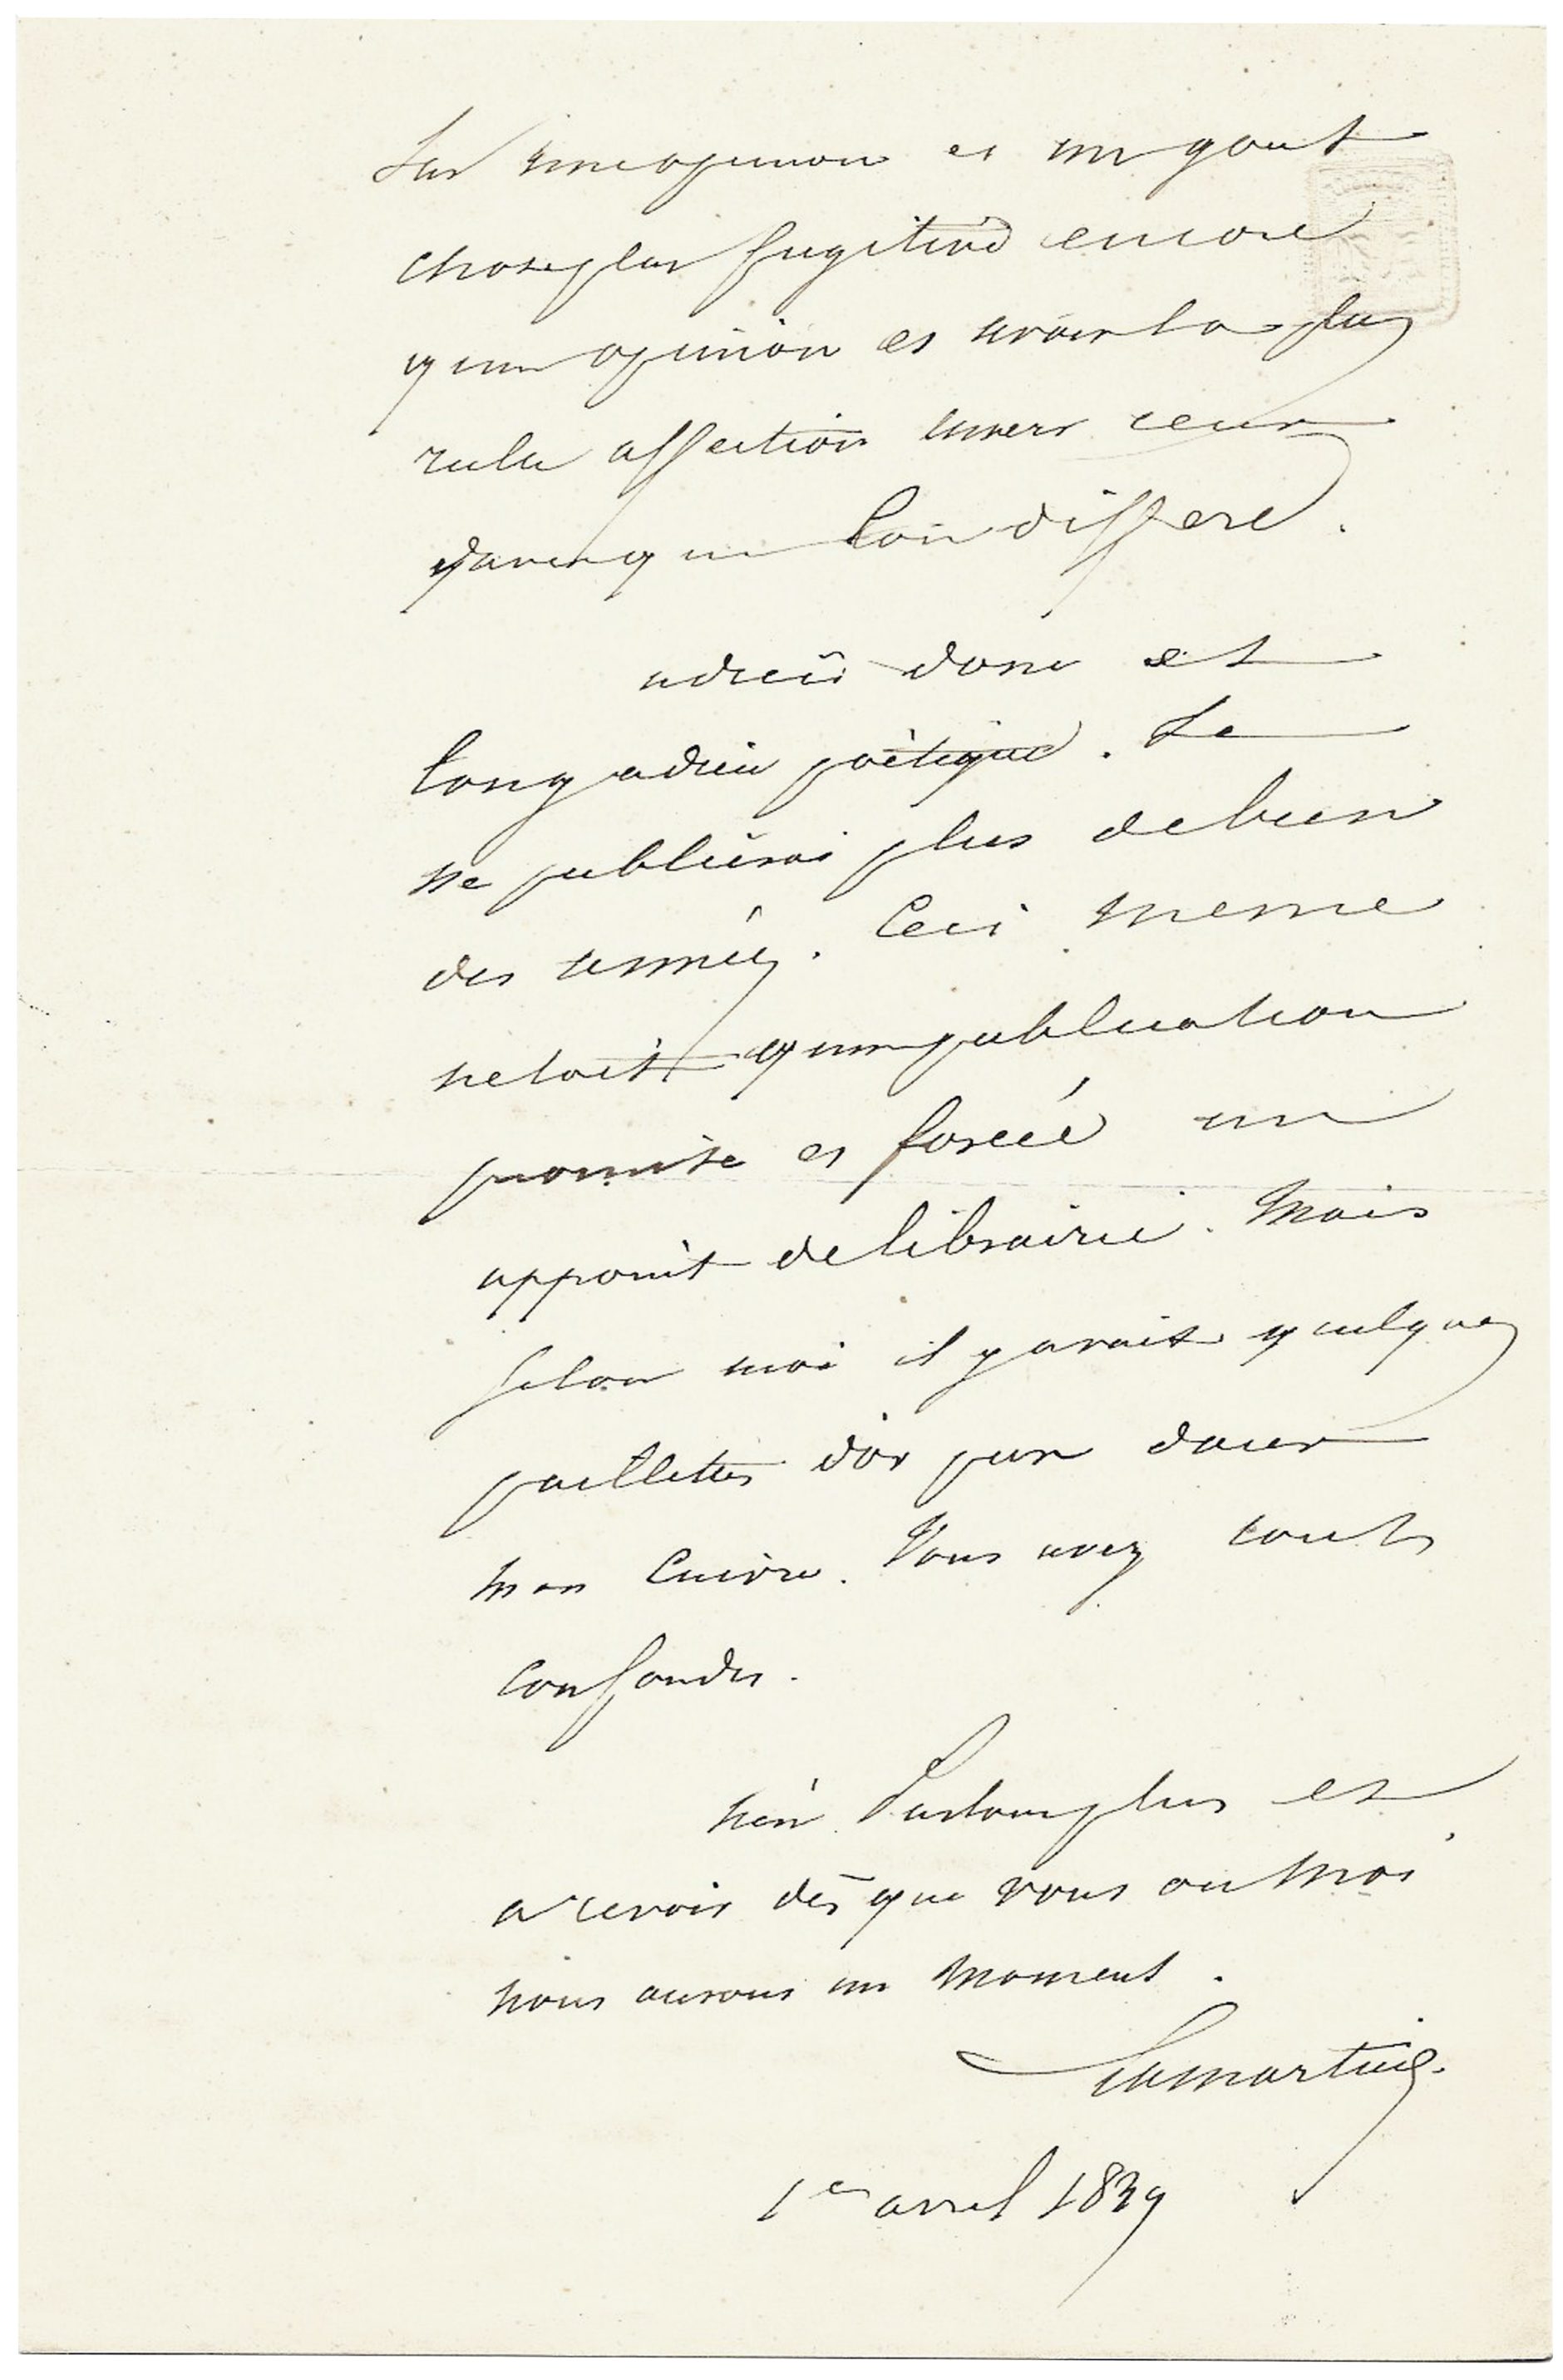 sur une opinion et un gout
chose plus fugitive encore
qu'une opinion et avoir la plus
réelle affection envers ceux
dont on differe.
adieu donc et
long adieu poëtique. Je
ne publierai plus de bien
des années. Ceci meme
netoit qu'une publication
promise et forcée un
appoint de librairie. Mais
selon moi il y avait quelques
paillettes d'or pur dans
mon cuivre. Vous avez tout
confondu.
nen parlons plus et
a revoir dès que vous ou moi
nous aurons un moment.
Lamartine
1er avril 1839